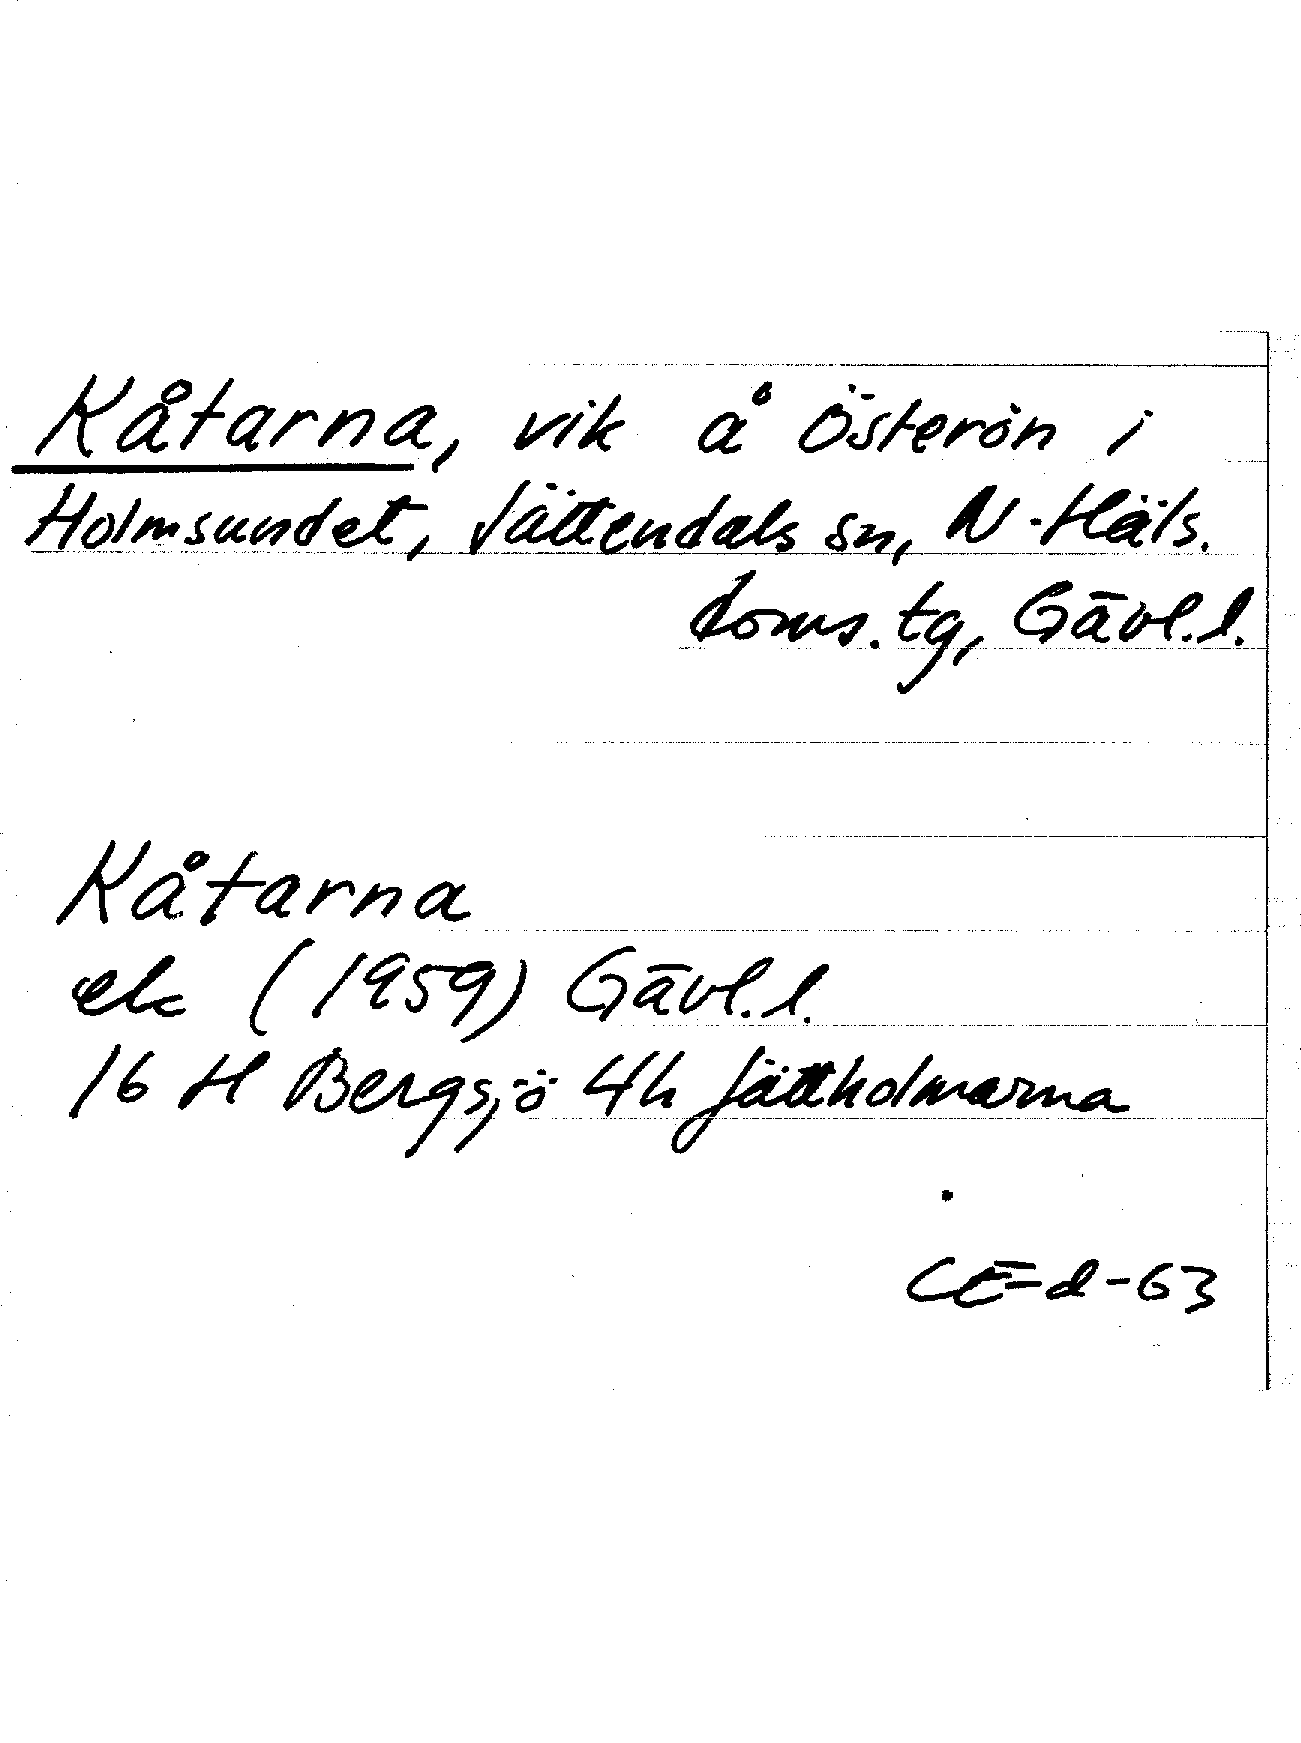 Kåtarna, vik å Österön i
Holmsundet, Jättendals sn, N. Häls.
doms. tg, Gävl. l.
Kåtarna
ek (1959) Gävl. l.
16 H Bergsjö 4h Jättholmarna
CE=d-63